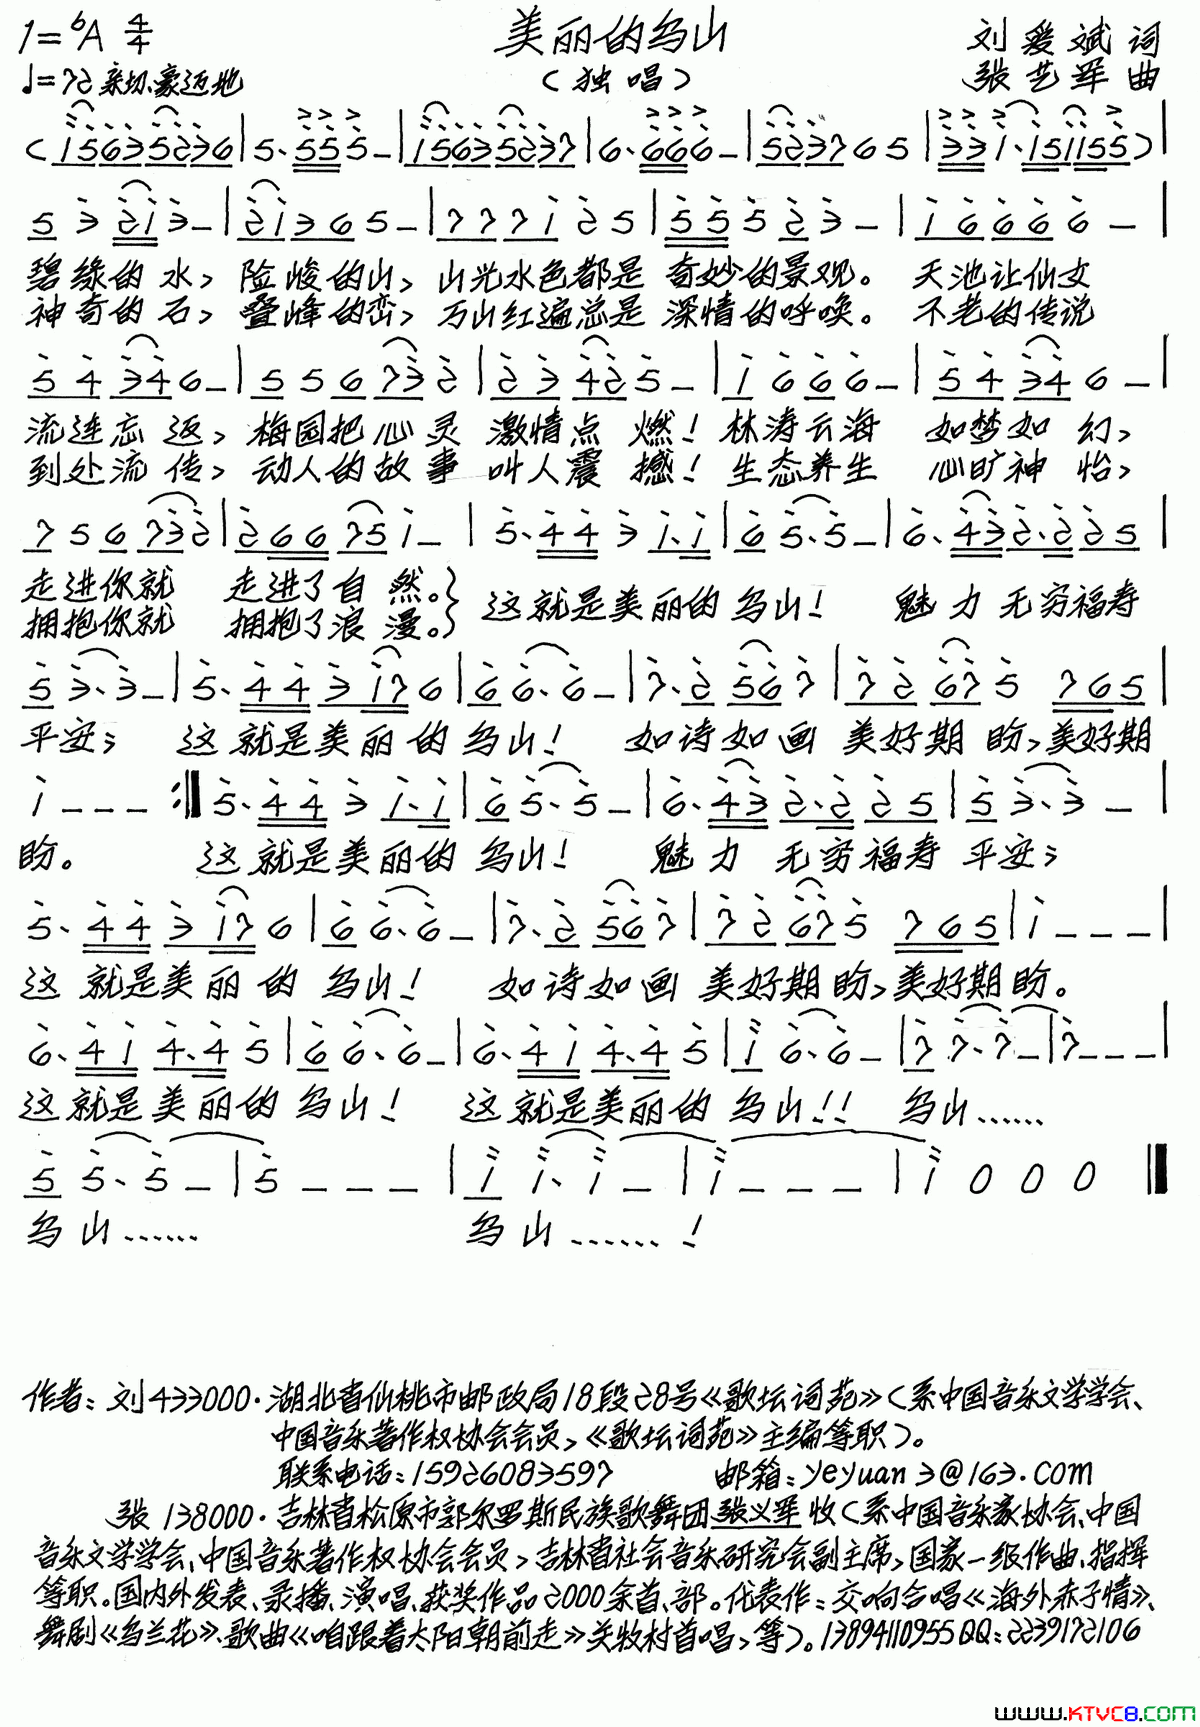 1=♭A 4/4 美丽的乌山 刘爱斌 词
♩=72 亲切、豪迈地 (独唱) 张艺军 曲
( 1 5 6 3 5 2 3 6 | 5. 5 5 5 – | 1 5 6 3 5 2 3 7 | 6. 6 6 6 – | 5 2 3 7 6 5 | 3 3 1. 1 5 1 1 5 5 ) |
5 3 2 1 3 – | 2 1 3 6 5 – | 7 7 7 1 2 5 | 5 5 5 2 3 – | 1 6 6 6 6 – |
碧绿的水, 险峻的山, 山光水色都是 奇妙的景观。 天池让仙女
神奇的石, 叠峰的峦, 万山红遍总是 深情的呼唤。 不老的传说
5 4 3 4 6 – | 5 5 6 7 3 2 | 2 3 4 2 5 – | 1 6 6 6 – | 5 4 3 4 6 – |
流连忘返, 梅园把心灵 激情点燃! 林涛云海 如梦如幻,
到处流传, 动人的故事 叫人震撼! 生态养生 心旷神怡,
7 5 6 7 3 2 | 2 6 6 7 5 1 – | 5. 4 4 3 1. 1 | 6 5. 5 – | 6. 4 3 2. 2 2 5 |
走进你就 走进了自然。} 这就是美丽的乌山! 魅力无穷福寿
拥抱你就 拥抱了浪漫。}
5 3. 3 – | 5. 4 4 3 1 7 6 | 6 6. 6 – | 7. 2 5 6 7 | 7 2 6 7 5 7 6 5 |
平安; 这就是美丽的乌山! 如诗如画 美好期盼,美好期
1 – – – :‖ 5. 4 4 3 1. 1 | 6 5. 5 – | 6. 4 3 2. 2 2 5 | 5 3. 3 – |
盼。 这就是美丽的乌山! 魅力无穷福寿平安;
5. 4 4 3 1 7 6 | 6 6. 6 – | 7. 2 5 6 7 | 7 2 6 7 5 7 6 5 | 1 – – – |
这就是美丽的乌山! 如诗如画 美好期盼,美好期盼。
6. 4 1 4. 4 5 | 6 6. 6 – | 6. 4 1 4. 4 5 | 1 6. 6 – | 7 7. 7 – | 7 – – – |
这就是美丽的乌山! 这就是美丽的乌山!! 乌山……
5 5. 5 – | 5 – – – | 1 1. 1 – | 1 – – – | 1 0 0 0 ‖
乌山…… 乌山……!
作者:刘 433000·湖北省仙桃市邮政局18段28号《歌坛词苑》(系中国音乐文学学会、
中国音乐著作权协会会员,《歌坛词苑》主编等职)。
联系电话:15926083597 邮箱:yeyuan3@163.com
张 138000·吉林省松原市郭尔罗斯民族歌舞团张义军收(系中国音乐家协会、中国
音乐文学学会、中国音乐著作权协会会员,吉林省社会音乐研究会副主席,国家一级作曲、指挥
等职。国内外发表、录播、演唱、获奖作品2000余首、部。代表作:交响合唱《海外赤子情》、
舞剧《乌兰花》、歌曲《咱跟着太阳朝前走》关牧村首唱,等)。13894110955 QQ:2239172106
www.KTVC8.com